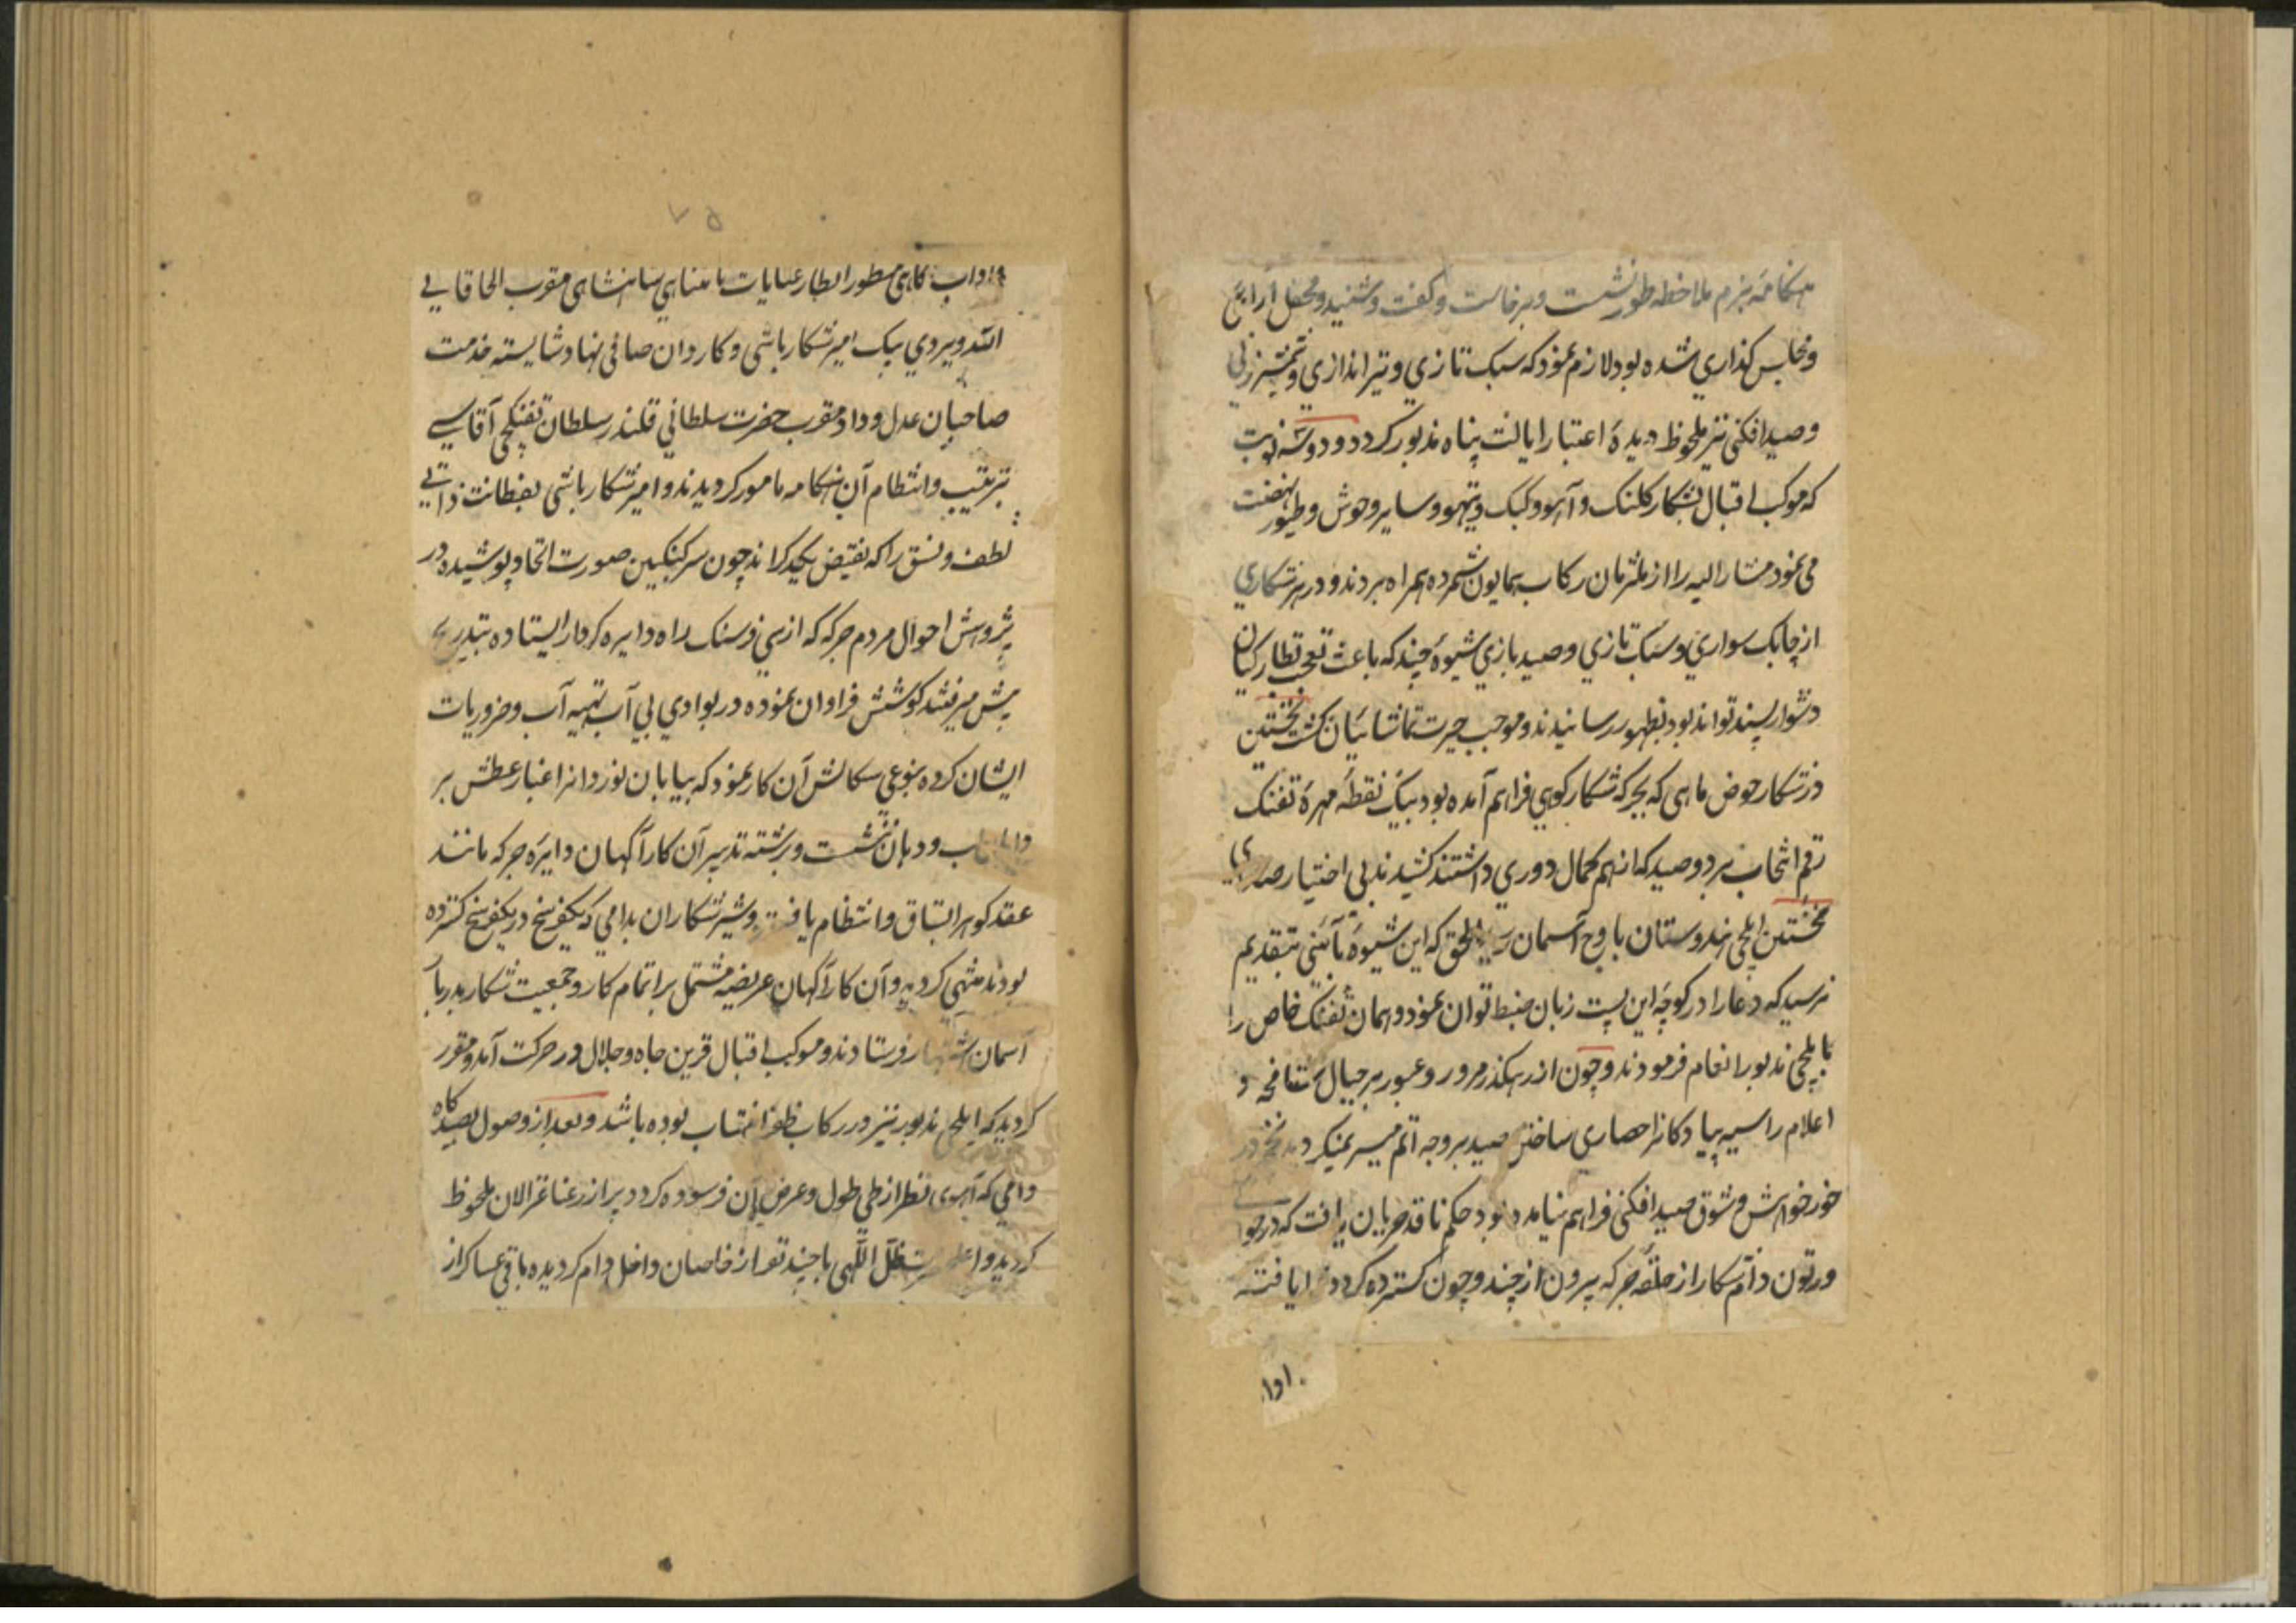 هنکامهٔ بزم ملاحظه طور نشست و برخاست و کفت و شنید و محفل ارایی
و مجلس کذاری شده بود لازم نمود که سبک تازی و تیراندازی و شمشیرزنی
و صید افکنی نیز ملحوظ دیدهٔ اعتبار ایالت پناه مذبور کردد و دو سه نوبت
که موکب اقبال بشکار کلنک و آهو و کبک و تیهو و سایر وحوش و طیور نهضت
می نمود مشار الیه را از ملتزمان رکاب همایون شمرده همراه بردند و در هر شکاری
از چابک سواری و سبک تازی و صید بازی شیوهٔ چند که باعث تعجب نظارکیان
دشوار پسند تواند بود بظهور رسانیدند و موجب حیرت تماشائیان کشت نخستین
در شکار حوض ماهی که بجرکه شکار کوهی فراهم آمده بود بیک نقطه مهرهٔ تفنک
رقم انتخاب بر دو صید که از هم کمال دوری داشتند کشیدند بی اختیار صدای
تحسین ایلچی هندوستان باوج آسمان الحق که این شیوهٔ بتقدیم
نرسید که دعا را در کوچهٔ این بست زبان ضبط توان نمود و همان تفنک خاص را
بایلچی مذبور انعام فرمودند و چون از رهکذر مرور و عبور بر جبال شامخه و
اعلام راسیه پیادکانرا حصاری ساختن صید بر وجه اتم میسر نمیکردید نخجیر در
خور خواهش و شوق صید افکنی فراهم نیامده بود حکم نافذ جریان یافت که در جوا
ورتون دام شکار از حلقه جرکه بیرون از چند و چون کسترده کردد یافته
اوا
۷۵
و اداب کاهی منظور انظار عنایات نامتناهی شاهنشاهی مقرب الخاقانی
الله ویردی بیک امیر شکار باشی و کاردان صافی نهاد شایسته خدمت
صاحبان عدل و داد مقرب حضرت سلطانی قلندر سلطان تفنکچی آقاسی
بترتیب و انتظام آن هنکامه مامور کردیدند و امیر شکار باشی بفطانت ذاتی
لطف و نسق را که نقیض یکدیکراند چون سرکنکبین صورت اتحاد پوشیده در
پژوهش احوال مردم جرکه که از سی فرسنک راه دایره کردار ایستاده بتدریج
پیش میرفتند کوشش فراوان نموده در بوادی بی آب تهیه آب و ضروریات
ایشان کرده بنوعی سکالش آن کار نمود که بیابان نوردانرا غبار عطش بر
و دهان ننشست و برشته تدبیر آن کارآکهان دایرهٔ جرکه مانند
عقد کوهر اتساق و انتظام یافت و شیر شکاران بدامی که یکفرسخ در یکفرسخ کسترده
بودند منتهی کردید و آن کارآکهان عریضه مشتمل بر اتمام کار و جمعیت شکار بدربار
آسمان اشتهار فرستادند و موکب اقبال قرین جاه و جلال در حرکت آمد و مقرر
کردید که ایلچی مذبور نیز در رکاب ظفر انتساب بوده باشد و بعد از وصول بصیدکاه
دامی که آهوی نظر از طی طول و عرض آن فرسوده کردد پر از رعنا غزالان ملحوظ
کردید و اعلیحضرت ظل اللهی با چند نفر از خاصان داخل دام کردیده باقی عساکر از